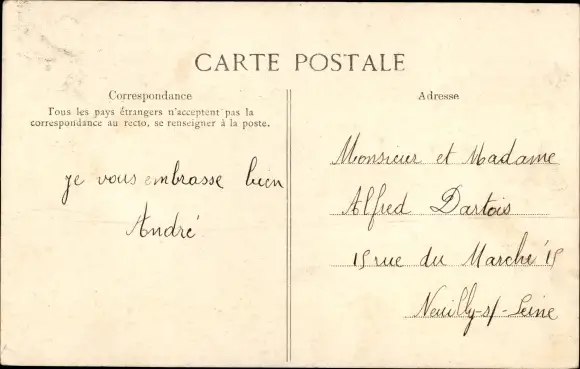 CARTE POSTALE
Correspondance
Tous les pays étrangers n'acceptent pas la
correspondance au recto, se renseigner à la poste.
je vous embrasse bien
André
Adresse
Monsieur et Madame
Alfred Dartois
15 rue du Marché 15
Neuilly-s/-Seine